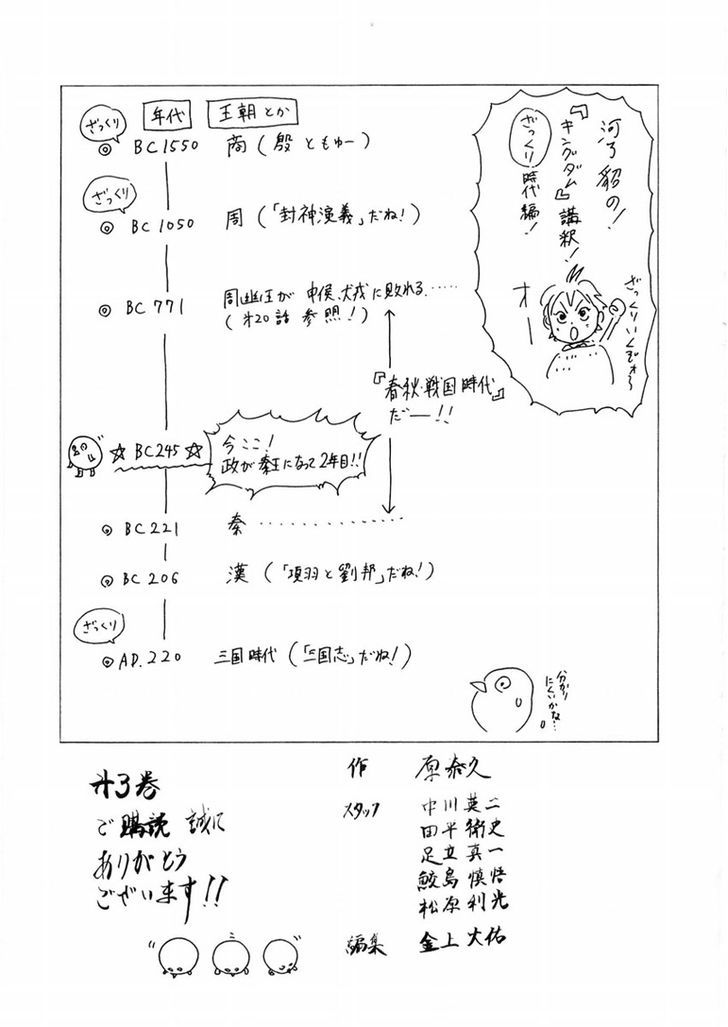 河了貂の!
『キングダム』講釈!
ざっくり時代編!
ざっくりいくぞォ〜
オー
年代 王朝とか
ざっくり
◎ BC1550 商(殷ともゆー)
ざっくり
◎ BC1050 周(「封神演義」だね!)
◎ BC771 周幽王が申侯、犬戎に敗れる……
(才20話参照!)
『春秋・戦国時代』
だー!!
☆BC245☆
今ここ!
政が秦王になって2年目!!
◎ BC221 秦……………
◎ BC206 漢(「項羽と劉邦」だね!)
ざっくり
◎ AD.220 三国時代(「三国志」だね!)
分かり
にくいかな…
才3巻
ご購読 誠に
ありがとう
ございます!!
作 原泰久
スタッフ 中川英二
田平衛史
足立真一
鮫島慎悟
松原利光
編集 金上大佑